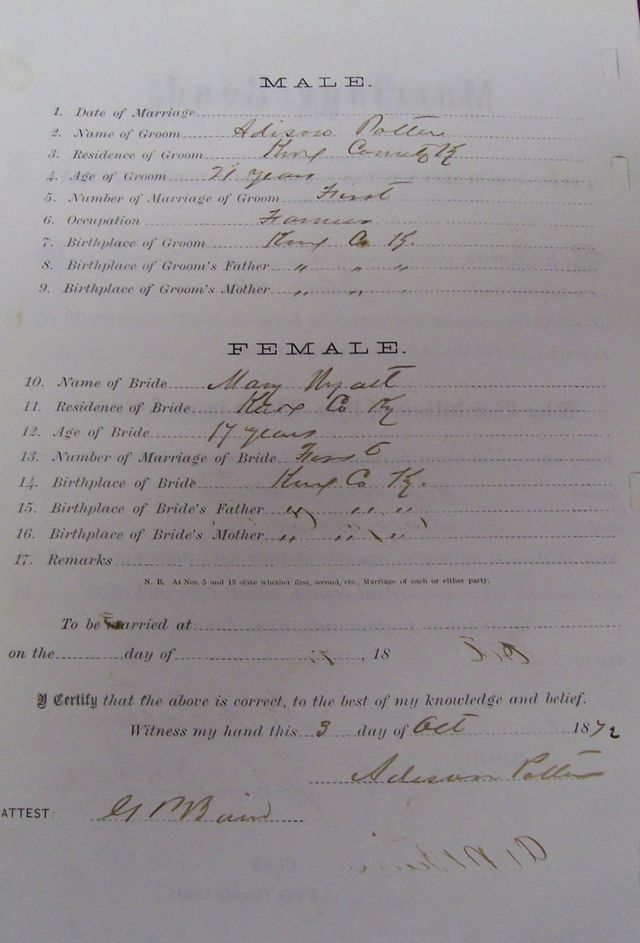 MALE.
1. Date of Marriage
2. Name of Groom Adison Potter
3. Residence of Groom Knox County Ky
4. Age of Groom 21 years
5. Number of Marriage of Groom First
6. Occupation Farmer
7. Birthplace of Groom Knox Co Ky.
8. Birthplace of Groom's Father " " "
9. Birthplace of Groom's Mother " " "
FEMALE.
10. Name of Bride Mary Wyatt
11. Residence of Bride Knox Co Ky
12. Age of Bride 17 years
13. Number of Marriage of Bride First
14. Birthplace of Bride Knox Co Ky.
15. Birthplace of Bride's Father " " "
16. Birthplace of Bride's Mother " " "
17. Remarks
N. B. At Nos. 5 and 13 state whether first, second, etc., Marriage of each or either party.
To be married at
on the day of , 18
I Certify that the above is correct, to the best of my knowledge and belief.
Witness my hand this 3 day of Oct 1872
Adison Potter
ATTEST: Baird